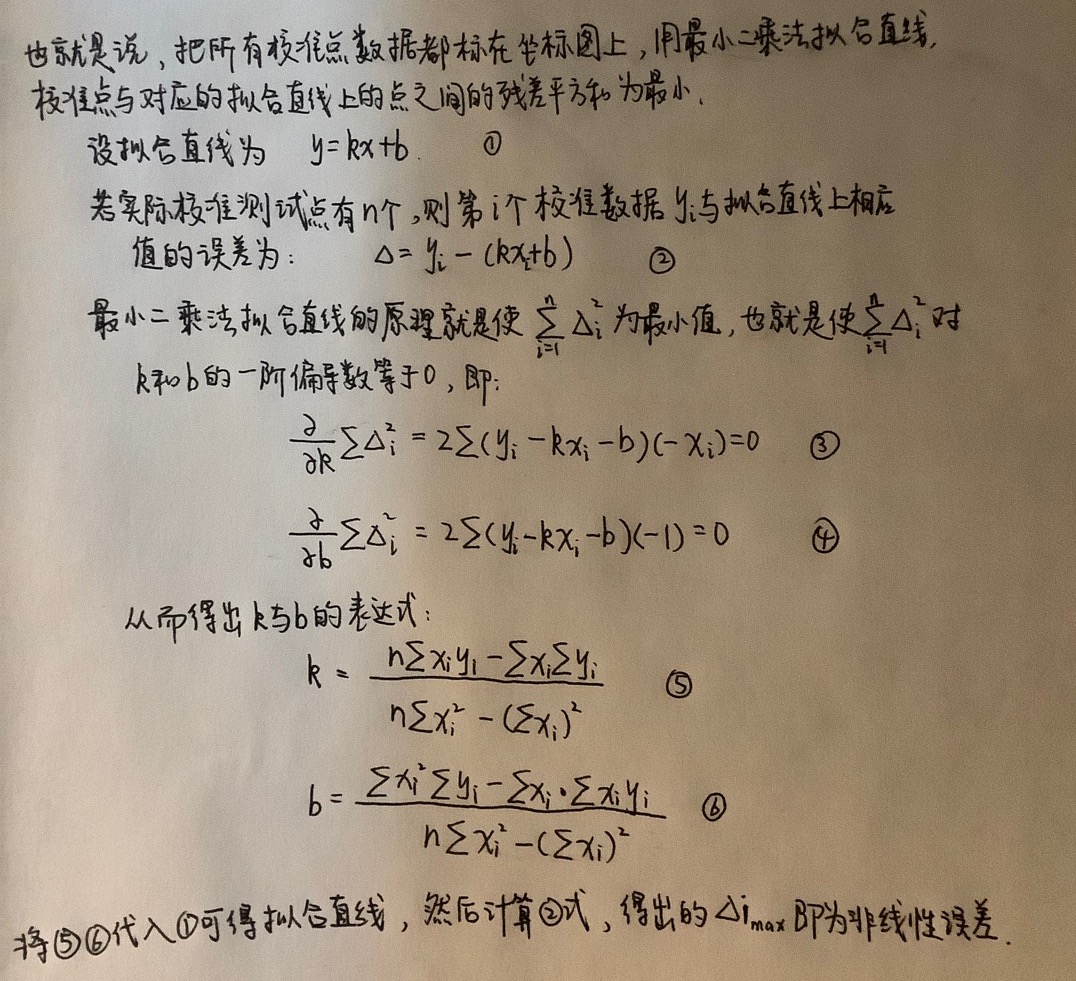 也就是说，把所有校准点数据都标在坐标图上，用最小二乘法拟合直线，
校准点与对应的拟合直线上的点之间的残差平方和为最小.
设拟合直线为 y=kx+b. ①
若实际校准测试点有n个，则第i个校准数据yᵢ与拟合直线上相应
值的误差为： Δ= yᵢ - (kxᵢ+b) ②
最小二乘法拟合直线的原理就是使 ∑ᵢ₌₁ⁿ Δᵢ² 为最小值，也就是使 ∑ᵢ₌₁ⁿ Δᵢ² 对
k和b的一阶偏导数等于0，即：
∂/∂k ∑Δᵢ² = 2∑(yᵢ -kxᵢ -b)(-xᵢ)=0 ③
∂/∂b ∑Δᵢ² = 2∑(yᵢ-kxᵢ-b)(-1)=0 ④
从而得出k与b的表达式：
k = (n∑xᵢyᵢ -∑xᵢ∑yᵢ) / (n∑xᵢ² - (∑xᵢ)²) ⑤
b = (∑xᵢ²∑yᵢ -∑xᵢ·∑xᵢyᵢ) / (n∑xᵢ² -(∑xᵢ)²) ⑥
将⑤⑥代入①可得拟合直线，然后计算②式，得出的Δiₘₐₓ即为非线性误差.